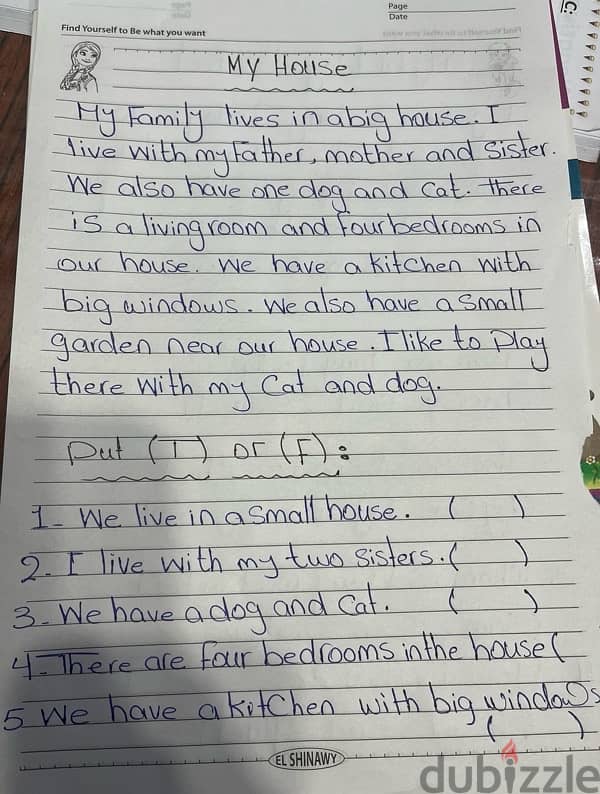 Page
Date
Find Yourself to Be what you want
My House
My Family lives in a big house. I
live with my Father, mother and Sister.
We also have one dog and Cat. there
is a living room and four bedrooms in
our house. We have a kitchen with
big windows. We also have a Small
garden near our house. I like to play
there with my Cat and dog.
Put (T) or (F):
1- We live in a small house. ( )
2. I live with my two sisters. ( )
3- We have a dog and Cat. ( )
4- There are four bedrooms in the house (
5 We have a kitchen with big windows
( )
EL SHINAWY
dubizzle